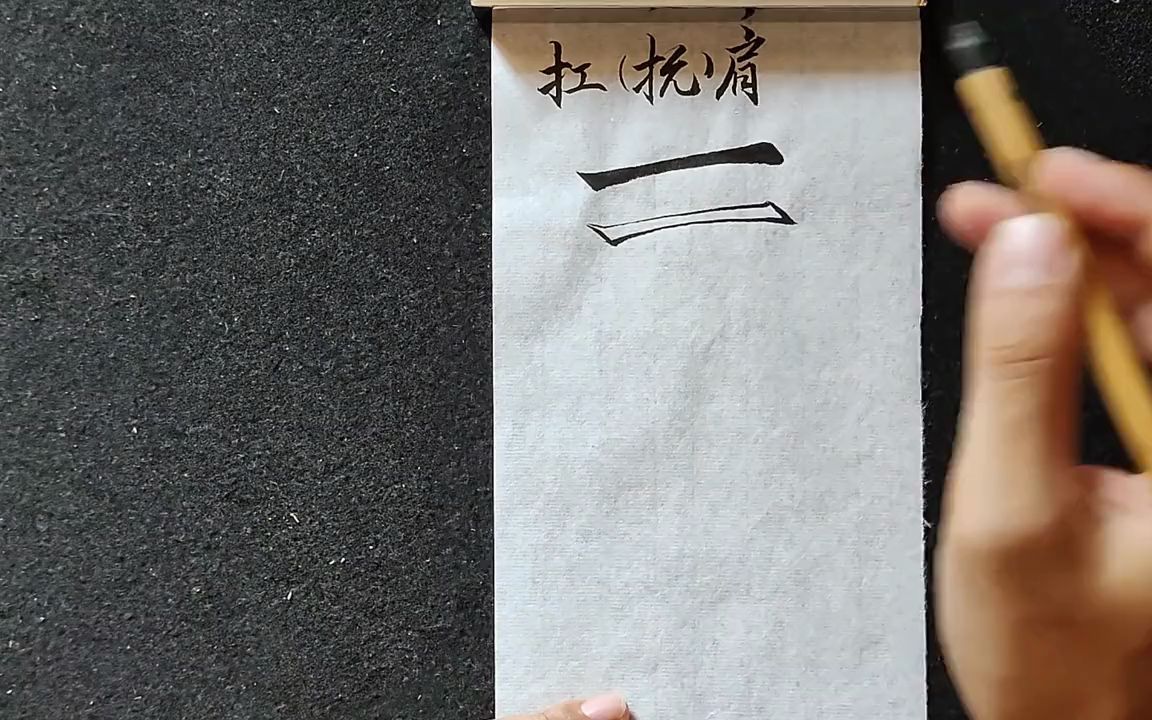 扛(抗)肩